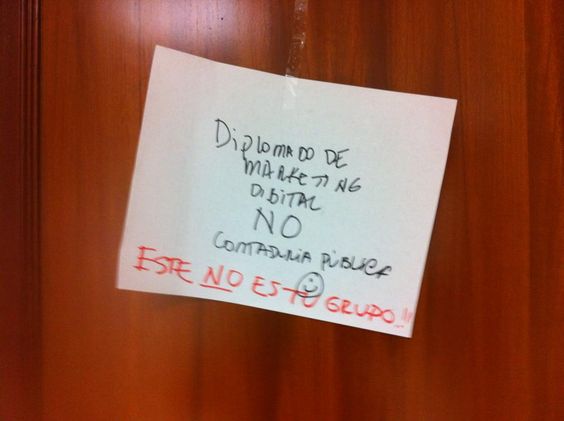 Diplomado de
Marketing
Digital
NO
Contaduria Pública
ESTE NO ES TU GRUPO!!